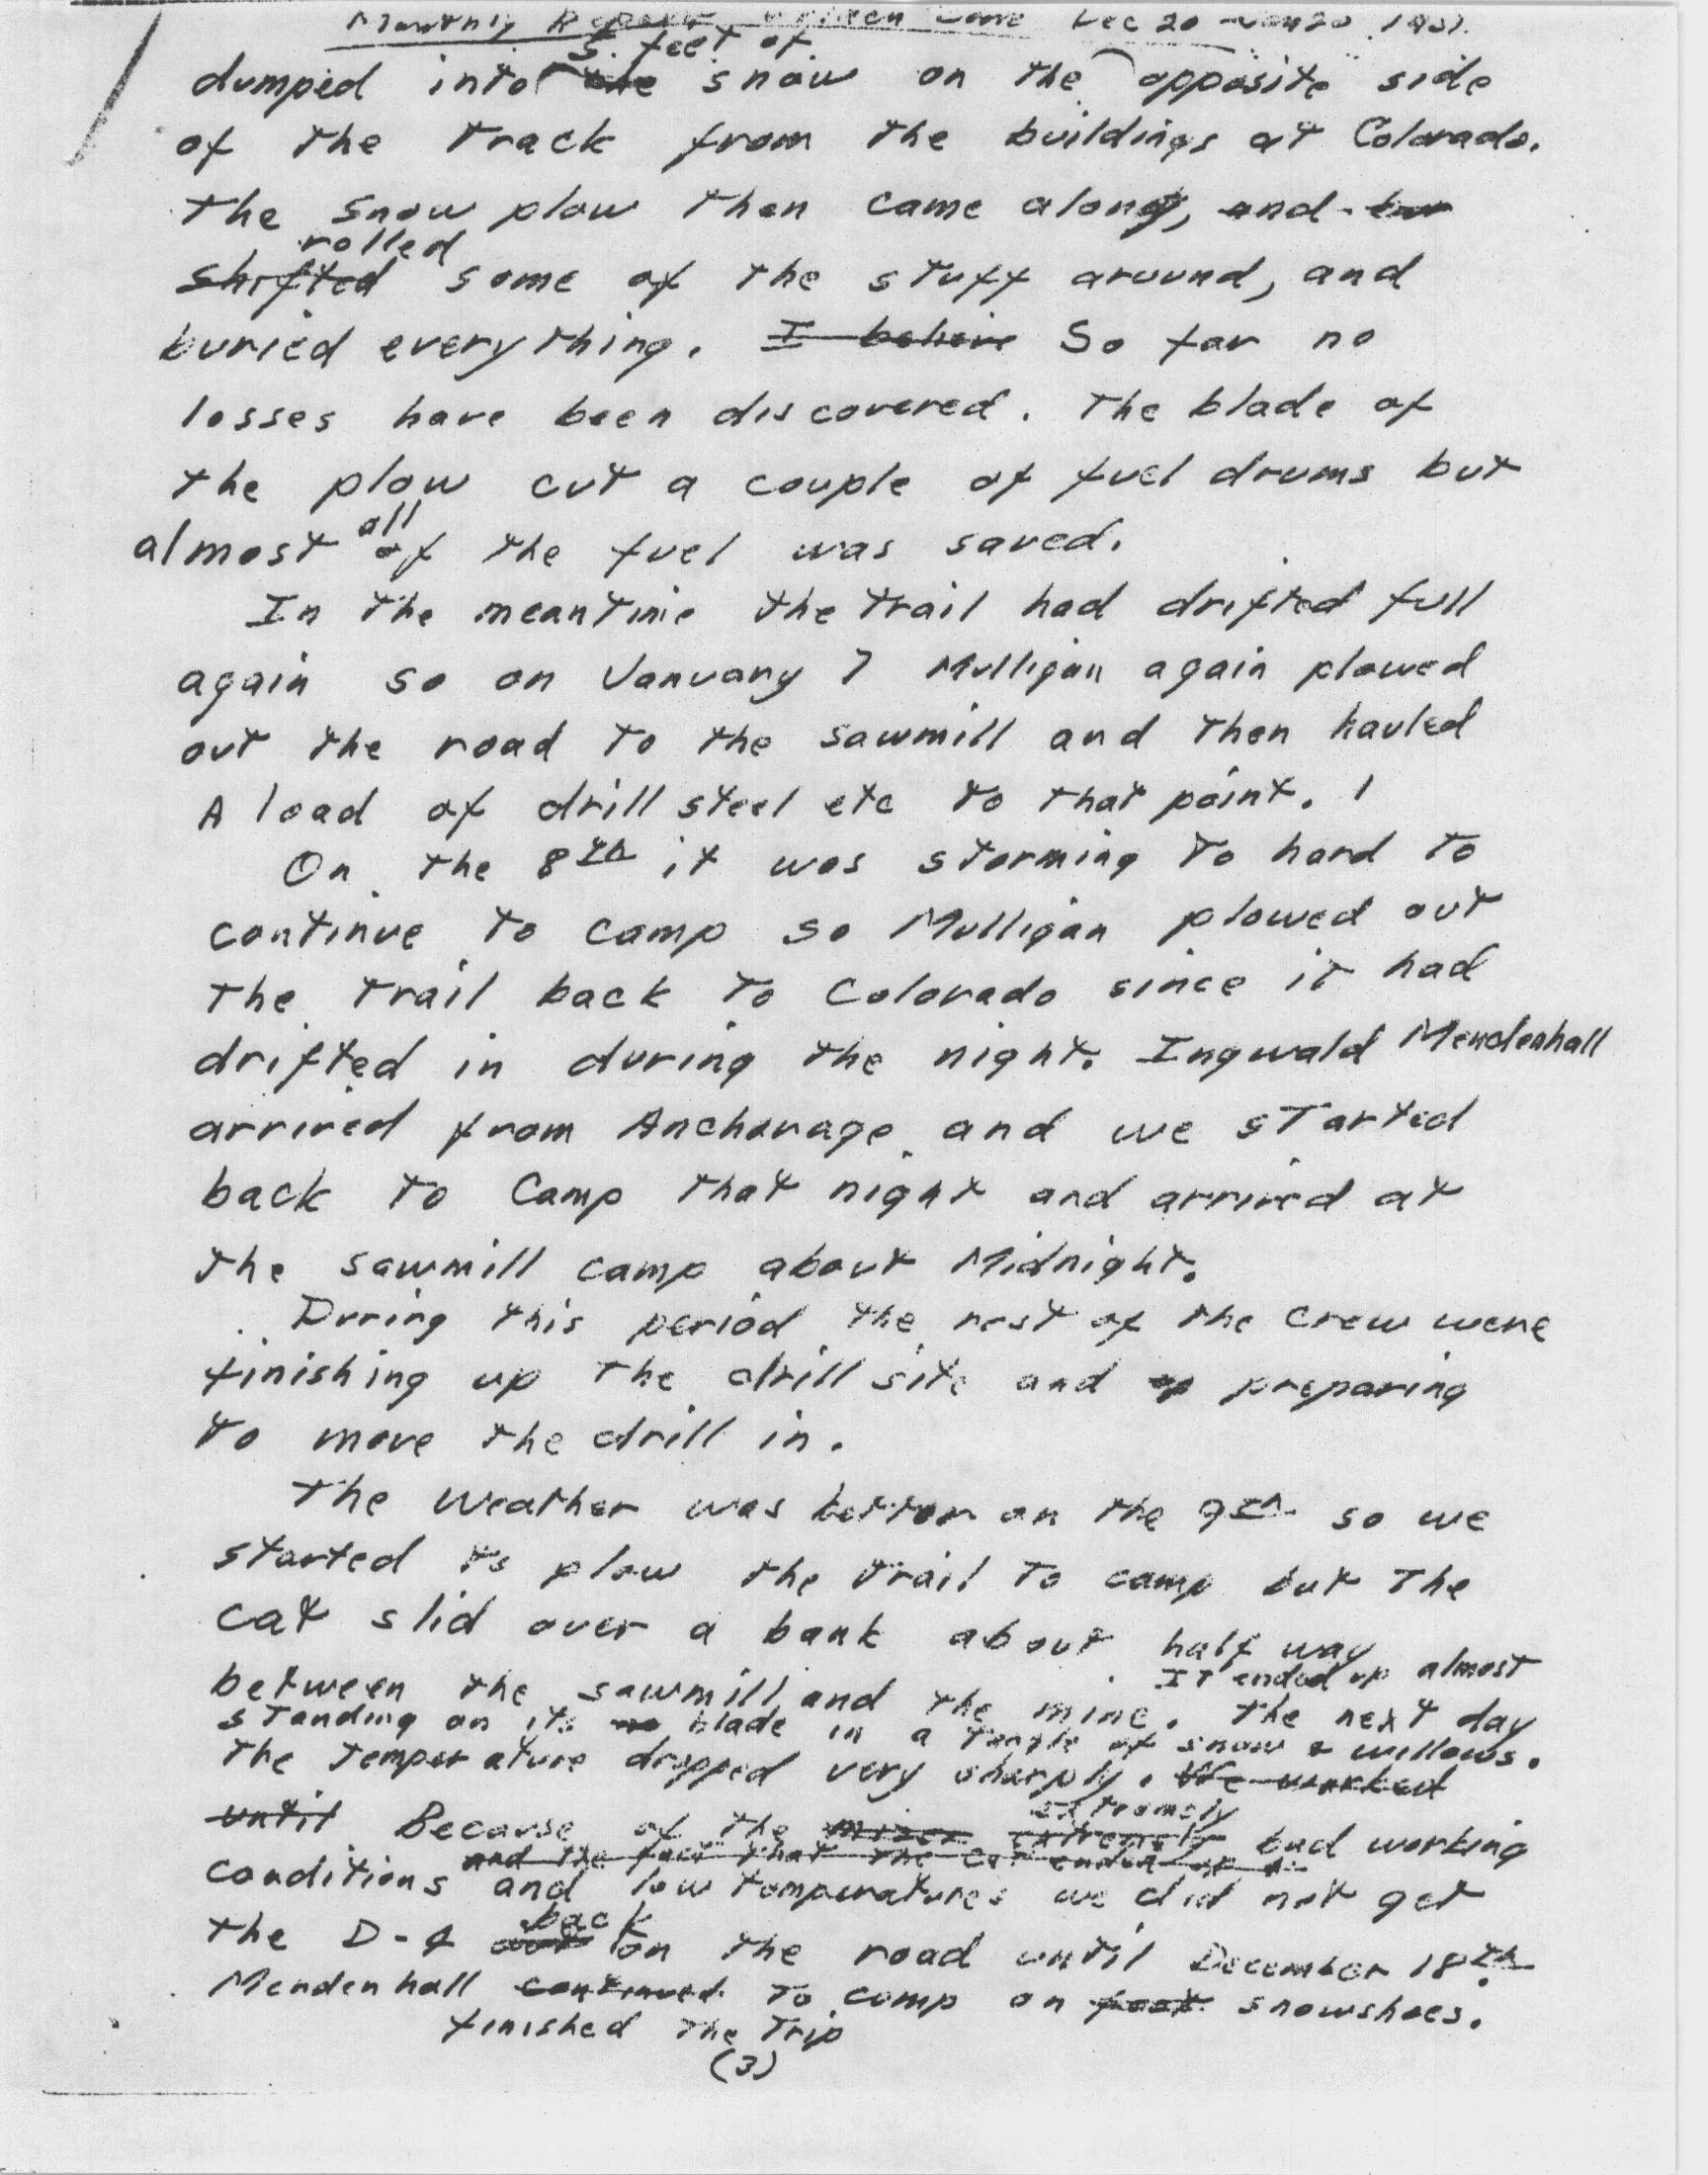 Monthly Report, Dec 20 - Jan 20, 1951.
5. feet of
dumped into the snow on the opposite side
of the track from the buildings at Colorado.
The snow plow then came along, and
rolled
shifted some of the stuff around, and
buried everything. I believe So far no
losses have been discovered. The blade of
the plow cut a couple of fuel drums but
all
almost of the fuel was saved.
In the meantime the trail had drifted full
again so on January 7 Mulligan again plowed
out the road to the sawmill and then hauled
A load of drill steel etc to that point.
On the 8th it was storming to hard to
continue to camp so Mulligan plowed out
the trail back to Colorado since it had
drifted in during the night. Ingwald Mendenhall
arrived from Anchorage and we started
back to Camp that night and arrived at
the sawmill camp about Midnight.
During this period the rest of the crew were
finishing up the drill site and preparing
to move the drill in.
The weather was better on the 9th so we
started to plow the trail to camp but the
cat slid over a bank about half way
It ended up almost
between the sawmill and the mine. The next day
standing on its blade in a tangle of snow & willows.
the temperature dropped very sharply. We worked
extremely
until Because of the extremely bad working
and the fact that the cat ended up
conditions and low temperatures we did not get
back
the D-4 out on the road until December 18th
Mendenhall continued to camp on foot snowshoes.
finished the trip
(3)